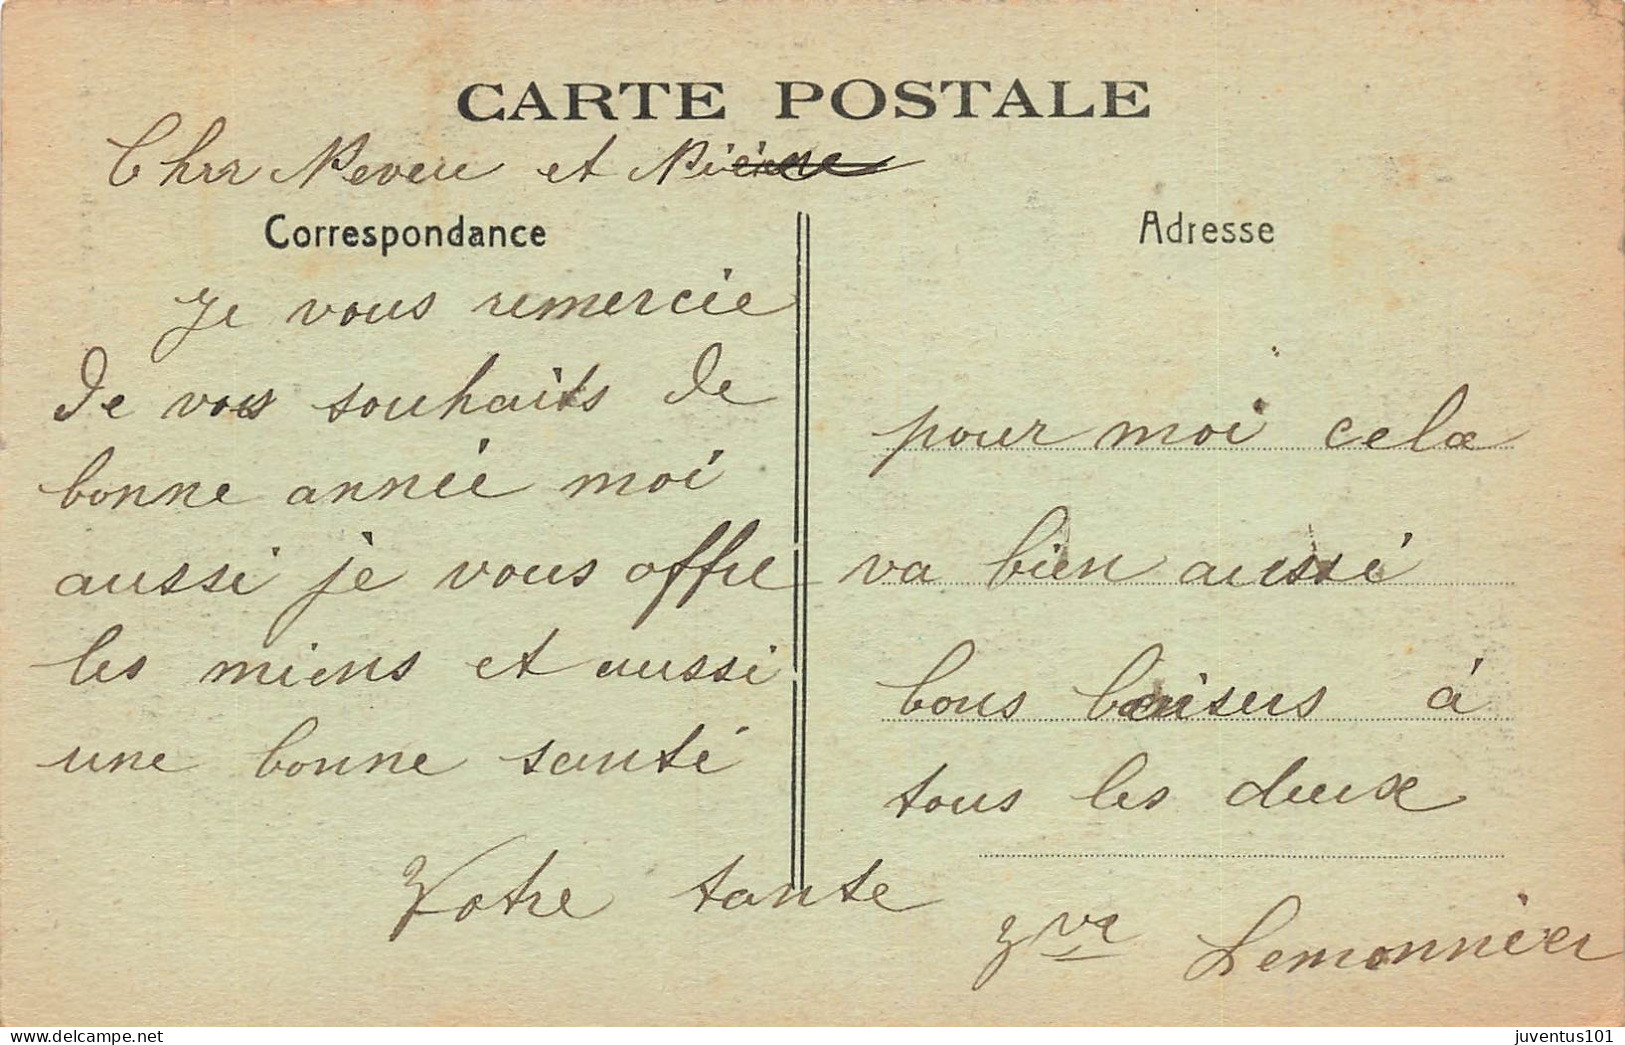 CARTE POSTALE
Cher Neveu et Nièce
Correspondance
Je vous remercie
de vos souhaits de
bonne année moi
aussi je vous offre
les miens et aussi
une bonne santé
Votre tante
Adresse
pour moi cela
va bien aussi
bons baisers à
tous les deux
Vve Lemonnier
juventus101